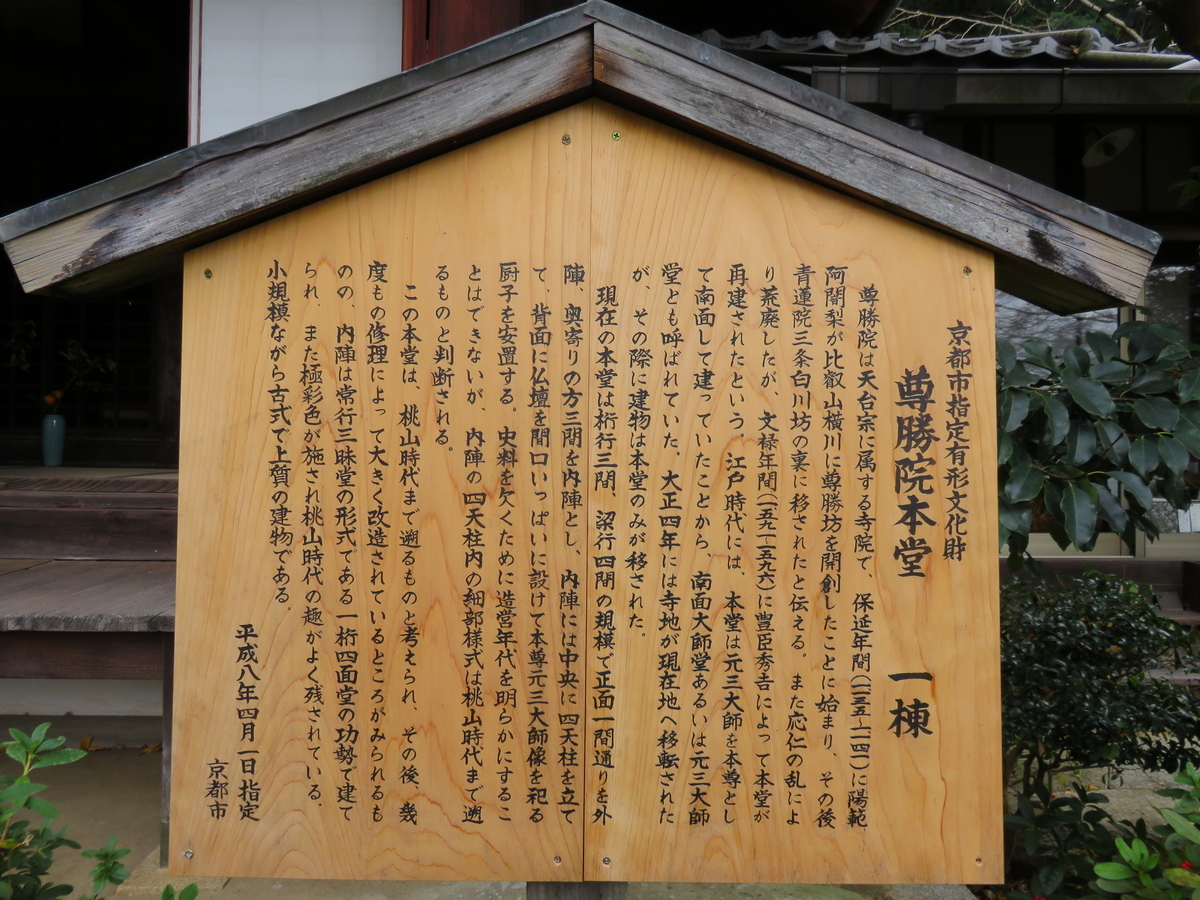 京都市指定有形文化財
尊勝院本堂 一棟
尊勝院は天台宗に属する寺院で、保延年間(一一三五〜一一四一)に陽範
阿闍梨が比叡山横川に尊勝坊を開創したことに始まり、その後
青蓮院三条白川坊の裏に移されたと伝える。また応仁の乱によ
り荒廃したが、文禄年間(一五九二〜一五九六)に豊臣秀吉によって本堂が
再建されたという。江戸時代には、本堂は元三大師を本尊とし
て南面して建っていたことから、南面大師堂あるいは元三大師
堂とも呼ばれていた。大正四年には寺地が現在地へ移転された
が、その際に建物は本堂のみが移された。
現在の本堂は桁行三間、梁行四間の規模で正面一間通りを外
陣、奥寄りの方三間を内陣とし、内陣には中央に四天柱を立て
て、背面に仏壇を間口いっぱいに設けて本尊元三大師像を祀る
厨子を安置する。史料を欠くために造営年代を明らかにするこ
とはできないが、内陣の四天柱内の細部様式は桃山時代まで遡
るものと判断される。
この本堂は、桃山時代まで遡るものと考えられ、その後、幾
度もの修理によって大きく改造されているところがみられるも
のの、内陣は常行三昧堂の形式である一桁四面堂の功勢で建て
られ、また極彩色が施され桃山時代の趣がよく残されている。
小規模ながら古式で上質の建物である。
平成八年四月一日指定
京都市